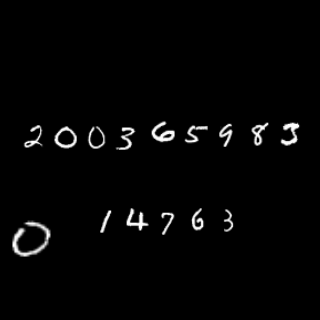 200365983
014763